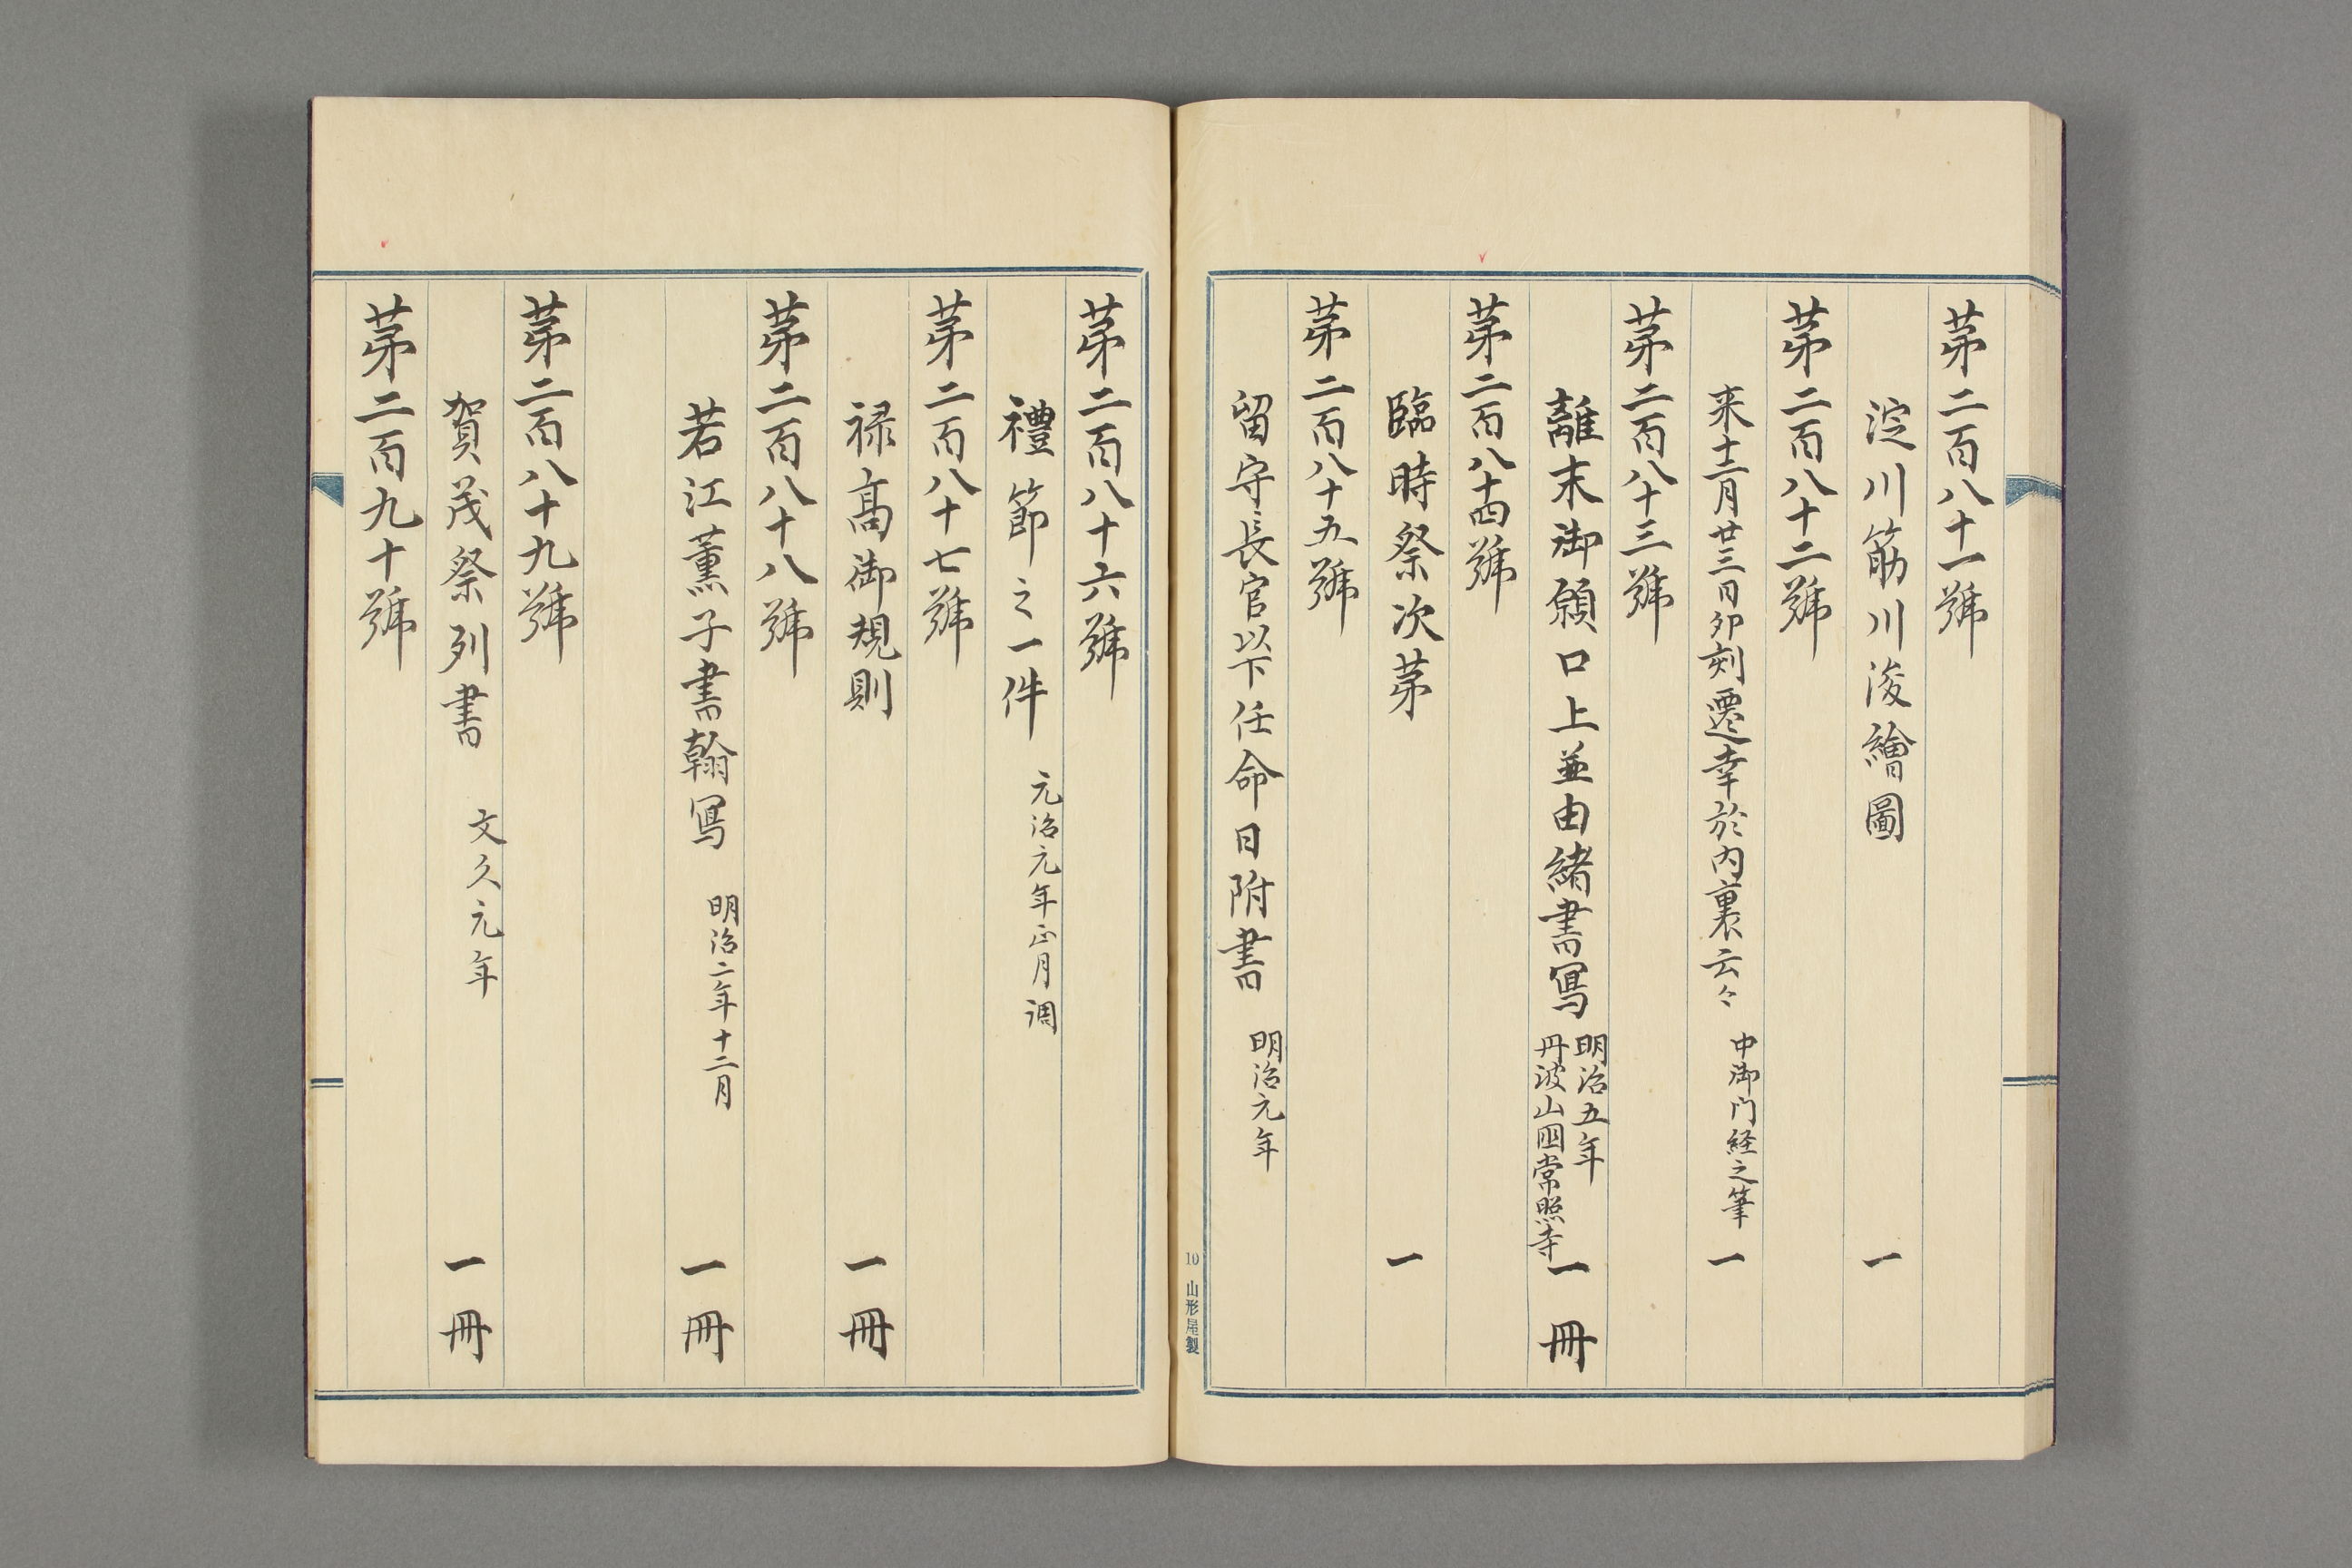 第二百八十一號
淀川筋川浚繪圖 一
第二百八十二號
来十二月廿三日卯刻遷幸於内裏云々 中御门経之筆 一
第二百八十三號
離末御願口上並由緒書写 明治五年 丹波山国常照寺 一冊
第二百八十四號
臨時祭次第 一
第二百八十五號
留守長官以下任命日附書 明治元年
10 山形屋製
第二百八十六號
禮節之一件 元治元年正月調
第二百八十七號
禄高御規則 一冊
第二百八十八號
若江薫子書翰写 明治二年十二月 一冊
第二百八十九號
賀茂祭列書 文久元年 一冊
第二百九十號